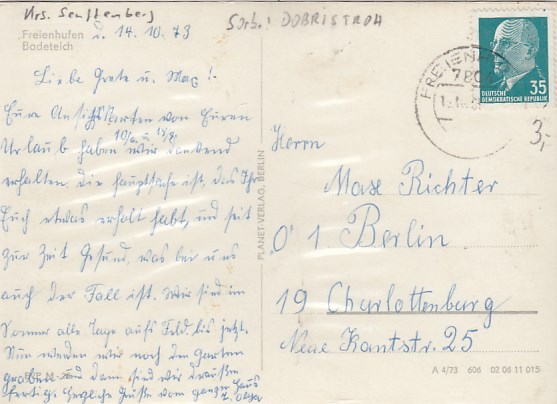 Krs. Senftenberg
Sorb.: DOBRISTROH
Freienhufen
Badeteich
d. 14.10.73
Liebe Grete u. Max!
Eure Ansichtskarten von Euren
10/9. u.
Urlaub haben wir dankend
erhalten, die hauptsache ist, das Ihr
Euch etwas erholt habt, und seit
zur Zeit Gesund, was bei uns
auch der Fall ist. Wir sind im
Sommer alle Tage aufs Feld. bis jetzt.
Nun werden wir noch den Garten
graben und dann sind wir draußen
fertig. Herzliche Grüße vom ganzen Haus
PLANET-VERLAG, BERLIN
DEUTSCHE
DEMOKRATISCHE REPUBLIK
35
3,
Herrn
Max Richter
1 Berlin
19 Charlottenburg
Neue Kantstr. 25
A 4/73 606 02 06 11 015